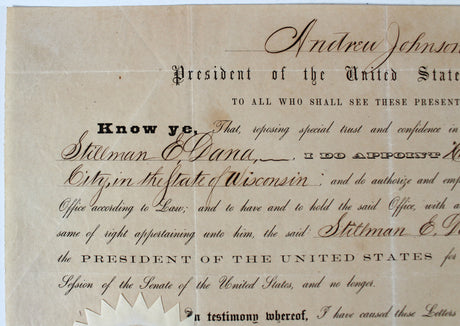 Andrew Johnson
President of the United State
TO ALL WHO SHALL SEE THESE PRESENT
Know ye, That, reposing special trust and confidence in
Stillman E. Dana, I DO APPOINT
City, in the State of Wisconsin; and do authorize and emp
Office according to Law; and to have and to hold the said Office, with a
same of right appertaining unto him, the said Stillman E. D
the PRESIDENT OF THE UNITED STATES for
Session of the Senate of the United States, and no longer.
In testimony whereof, I have caused these Letters